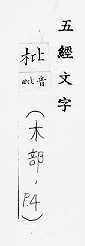 五經文字
枇
音毗
(木部,P.4)